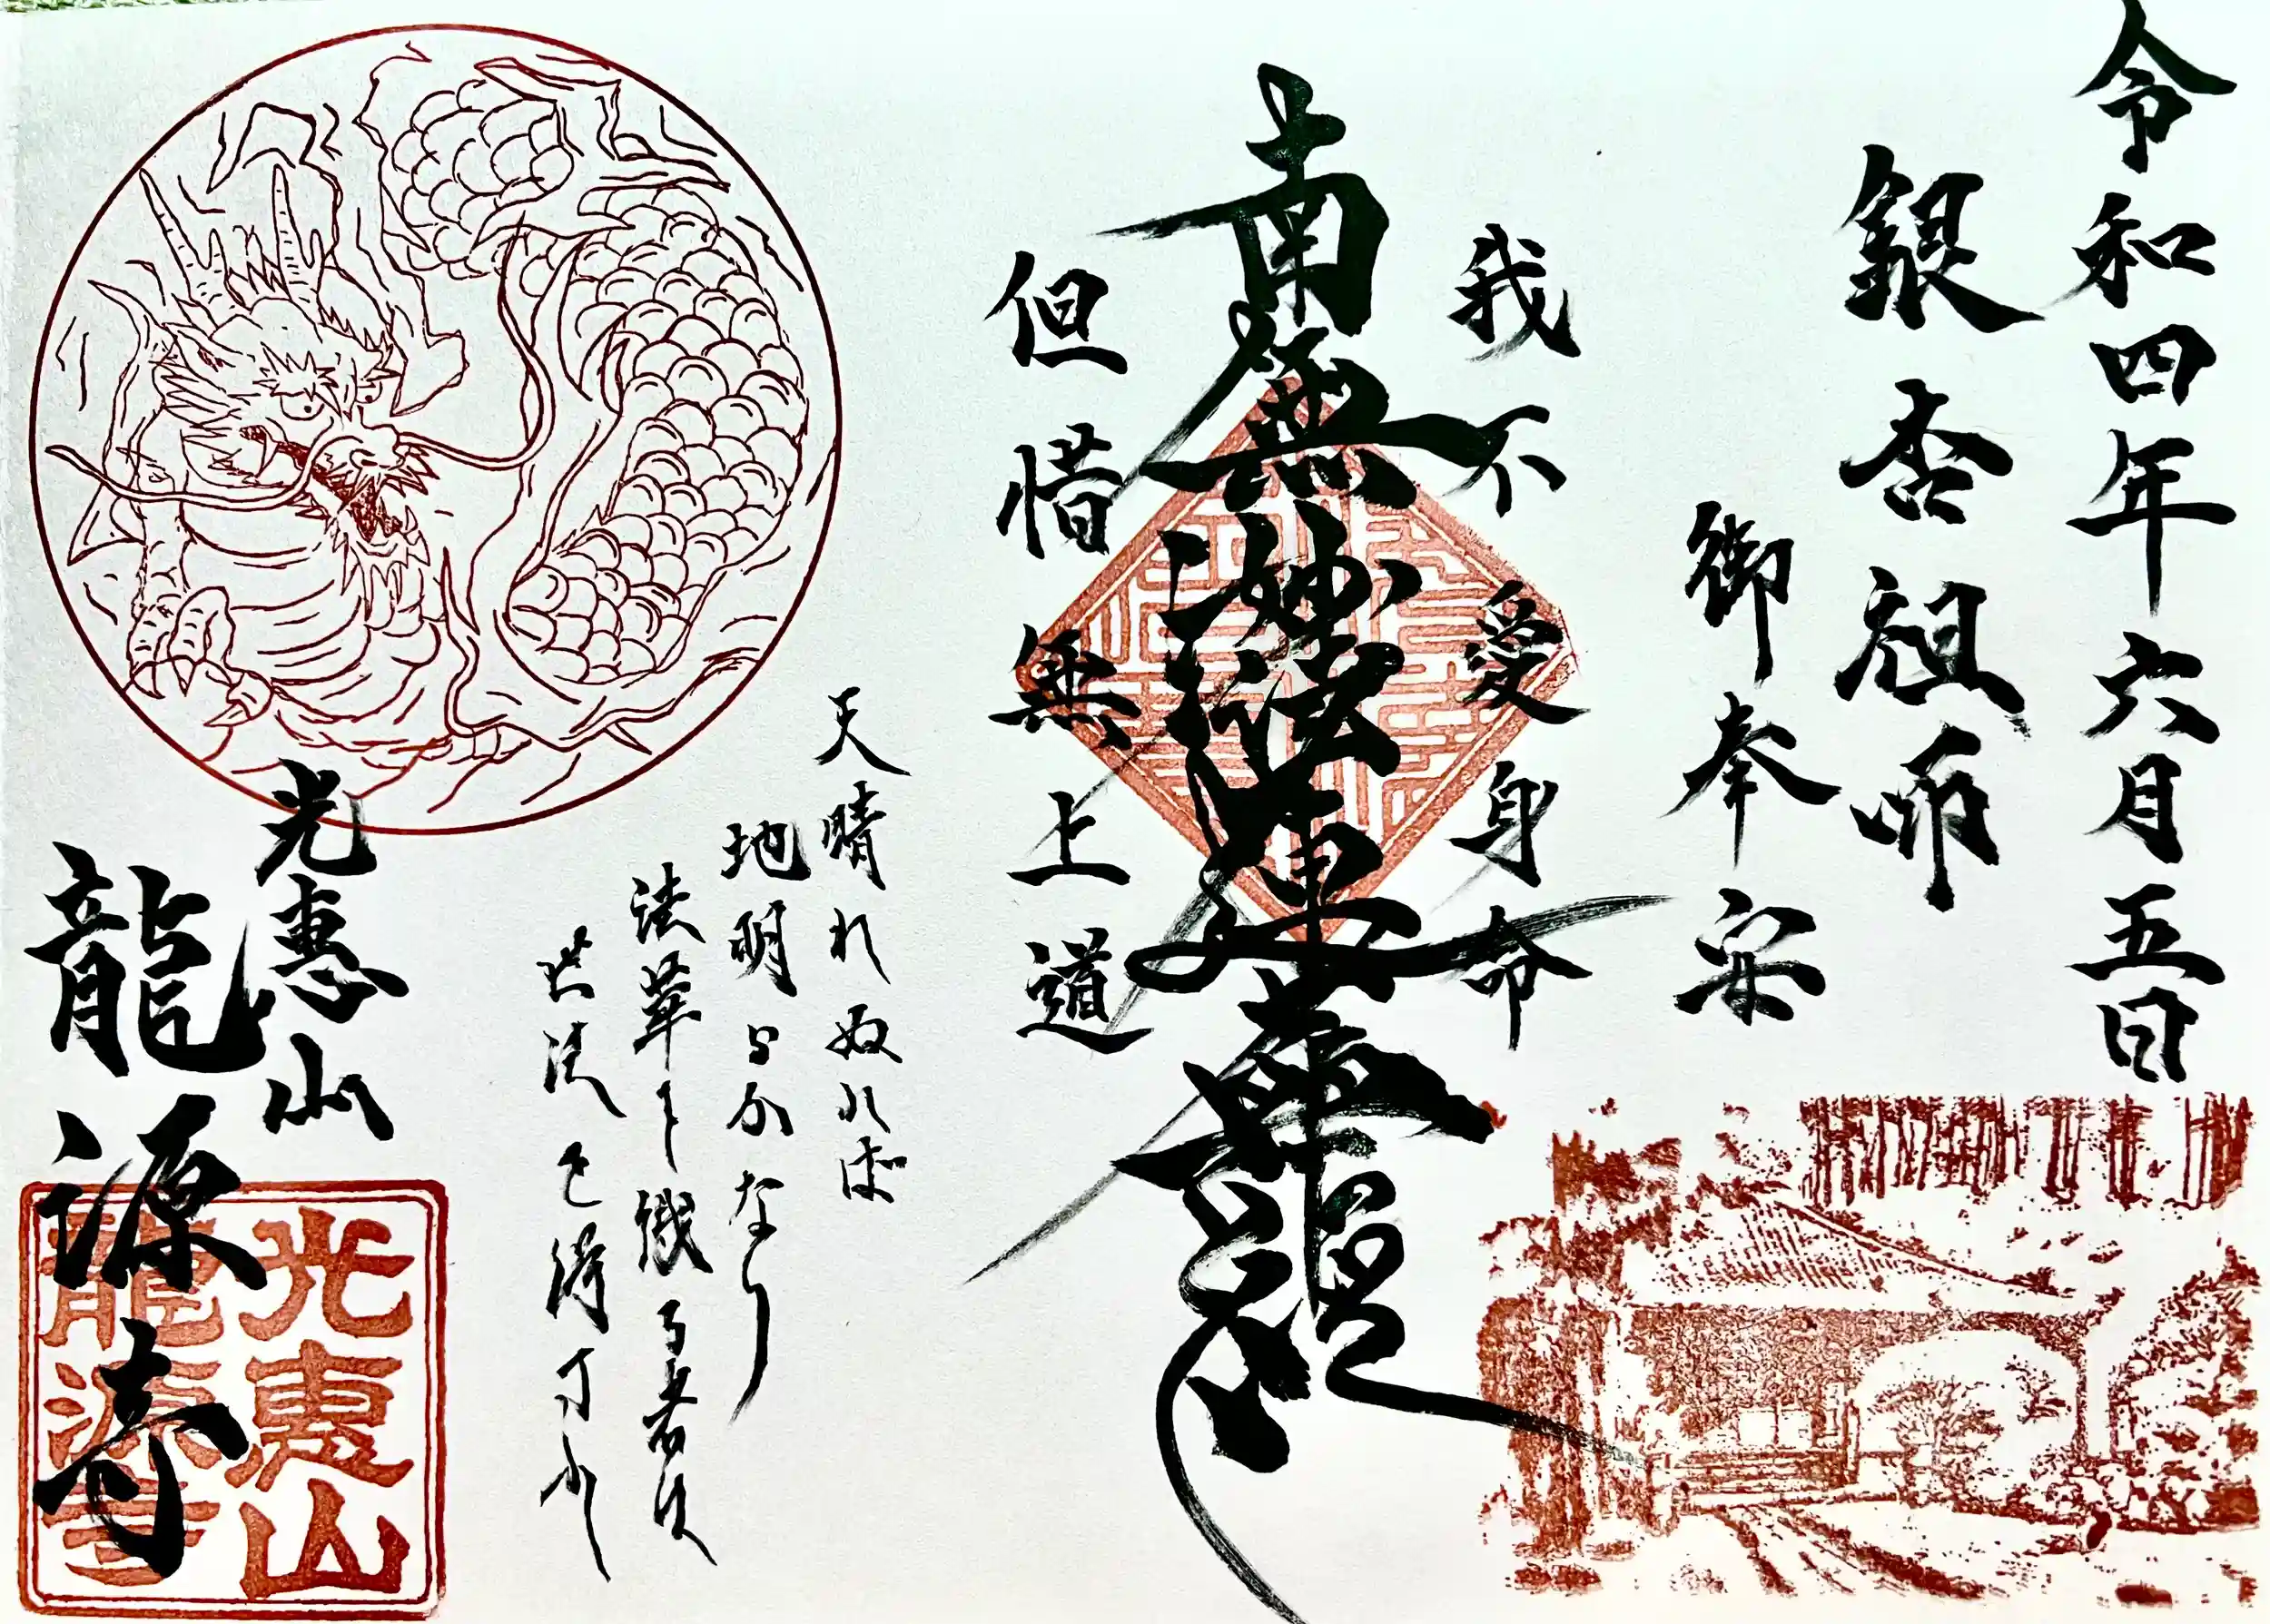 令和四年六月五日
銀杏祖師
御奉安
我不愛身命
南無妙法蓮華經
但惜無上道
天晴れぬれば
地明らかなり
法華を識る者は
世法を得可きか
光惠山
龍源寺
光惠山
龍源寺